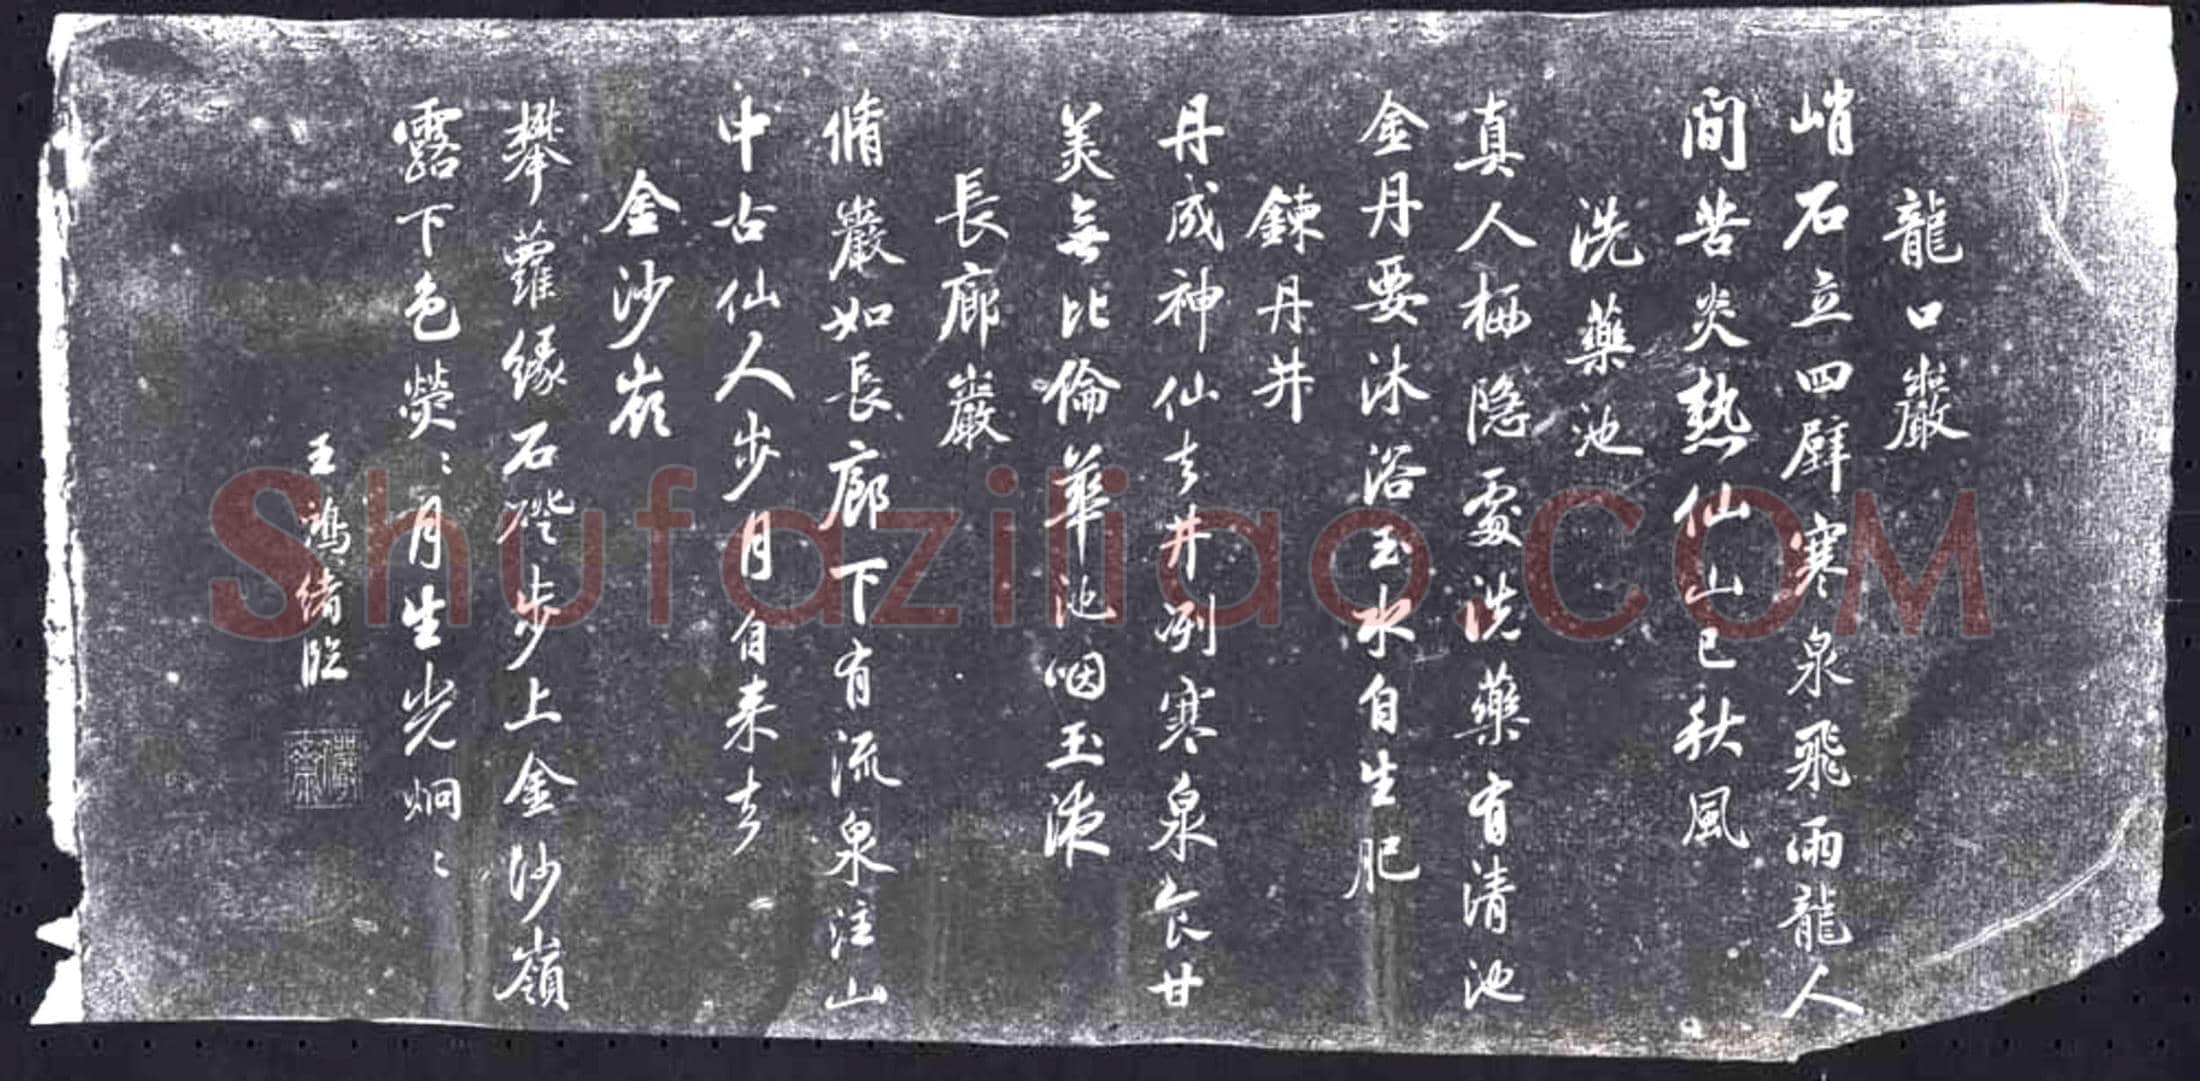 龍口巖
峭石立四壁寒泉飛雨龍人
間苦炎熱仙山已秋風
洗藥池
真人栖隐處洗藥有清池
金丹要沐浴玉水自生肥
鍊丹井
丹成神仙去井冽寒泉食甘
美無比倫華池咽玉液
長廊巖
脩巖如長廊下有流泉注山
中古仙人步月自来去
金沙嶺
攀蘿緣石磴步上金沙嶺
露下色熒：月生光炯：
王鴻緒臨
Shufaziliao.COM